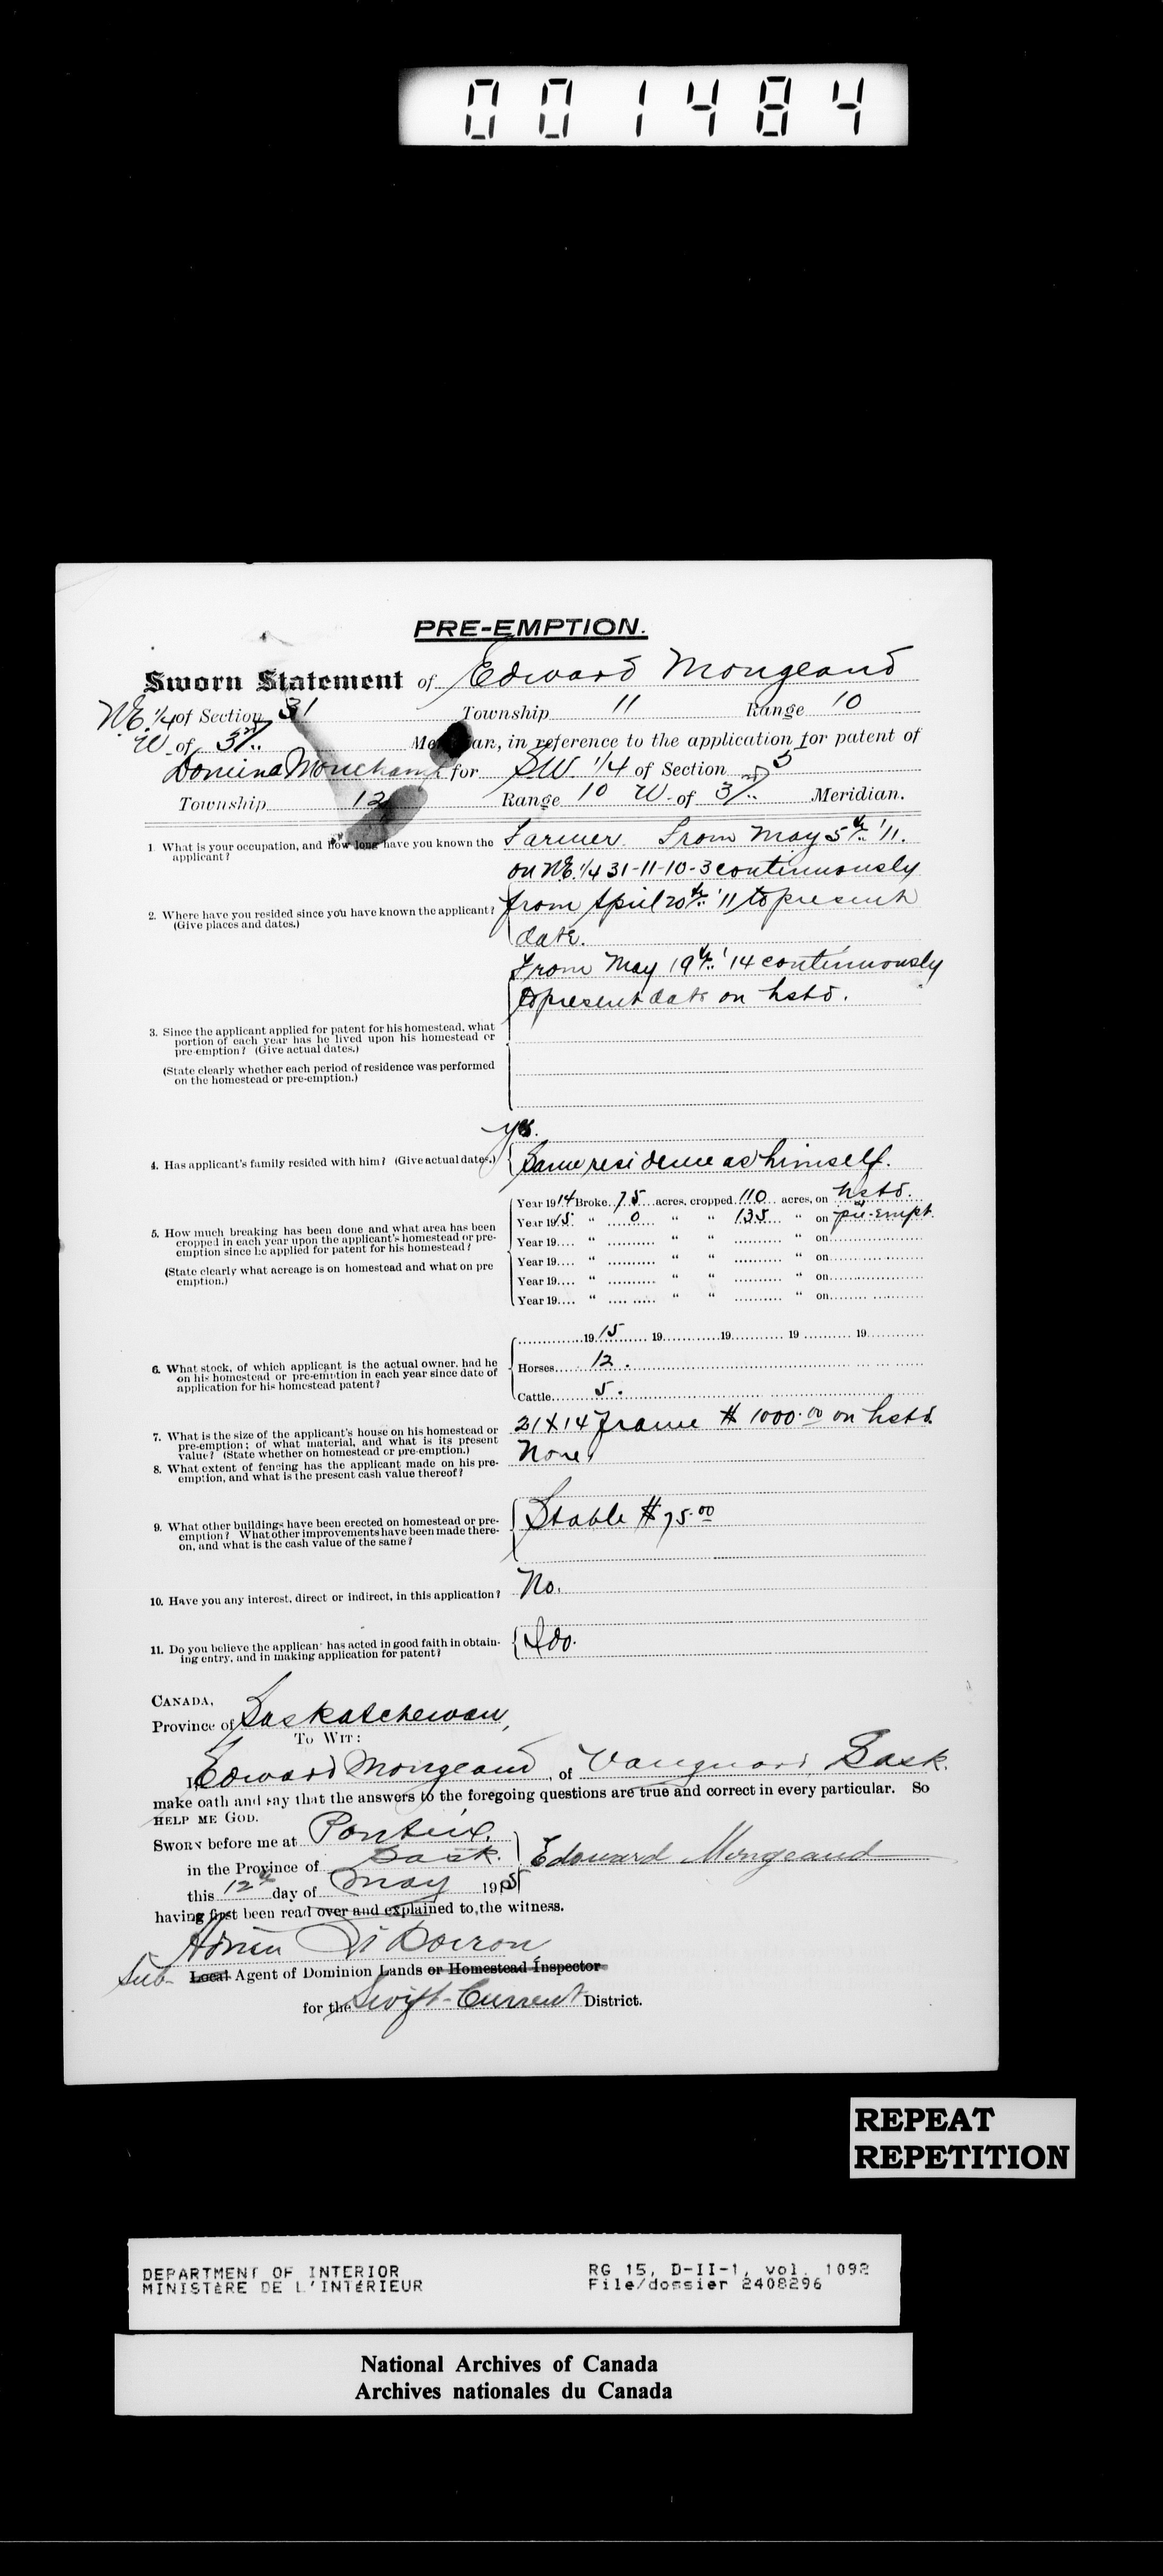 001484
PRE-EMPTION.
Sworn Statement of Edward Mongeaud
N.E. 1/4 of Section 31 Township 11 Range 10
W of 3rd Meridian, in reference to the application for patent of
Domina for SW 1/4 of Section 5
Township 12 Range 10 W. of 3rd Meridian.
1 What is your occupation, and how long have you known the
applicant?
Farmer. From May 5th '11.
on N.E. 1/4 31-11-10-3 continuously
2. Where have you resided since you have known the applicant?
(Give places and dates.)
from April 20th '11 to present
date.
From May 19th '14 continuously
to present date on hstd.
3. Since the applicant applied for patent for his homestead, what
portion of each year has he lived upon his homestead or
pre-emption? (Give actual dates.)
(State clearly whether each period of residence was performed
on the homestead or pre-emption.)
Yes.
4. Has applicant's family resided with him? (Give actual dates.)
Same residence as himself.
5. How much breaking has been done and what area has been
cropped in each year upon the applicant's homestead or pre-
emption since he applied for patent for his homestead?
(State clearly what acreage is on homestead and what on pre
emption.)
Year 1914 Broke 75 acres, cropped 110 acres, on hstd.
Year 1915 " 0 " " 135 " on pre-empt.
Year 19.... " .......... " " .......... " on..............
Year 19.... " .......... " " .......... " on..............
Year 19.... " .......... " " .......... " on..............
Year 19.... " .......... " " .......... " on..............
1915 19 19 19 19
6. What stock, of which applicant is the actual owner, had he
on his homestead or pre-emption in each year since date of
application for his homestead patent?
Horses 12.
Cattle 5.
7. What is the size of the applicant's house on his homestead or
pre-emption; of what material, and what is its present
value? (State whether on homestead or pre-emption.)
21 X 14 frame $ 1000.00 on hstd.
8. What extent of fencing has the applicant made on his pre-
emption, and what is the present cash value thereof?
None
9. What other buildings have been erected on homestead or pre-
emption? What other improvements have been made there-
on, and what is the cash value of the same?
Stable $ 75.00
10. Have you any interest, direct or indirect, in this application?
No.
11. Do you believe the applicant has acted in good faith in obtain-
ing entry, and in making application for patent?
I do.
CANADA,
Province of Saskatchewan,
To Wit:
I, Edward Mongeaud, of Vanguard, Sask.
make oath and say that the answers to the foregoing questions are true and correct in every particular. So
HELP ME GOD.
SWORN before me at Ponteix,
in the Province of Sask.
Edouard Mongeaud
this 12th day of May 1915
having first been read over and explained to, the witness.
Adrien Doiron
Sub- Local Agent of Dominion Lands or Homestead Inspector
for the Swift-Current District.
REPEAT
REPETITION
DEPARTMENT OF INTERIOR
MINISTÈRE DE L'INTÉRIEUR
RG 15, D-II-1, vol. 1092
File/dossier 2408296
National Archives of Canada
Archives nationales du Canada